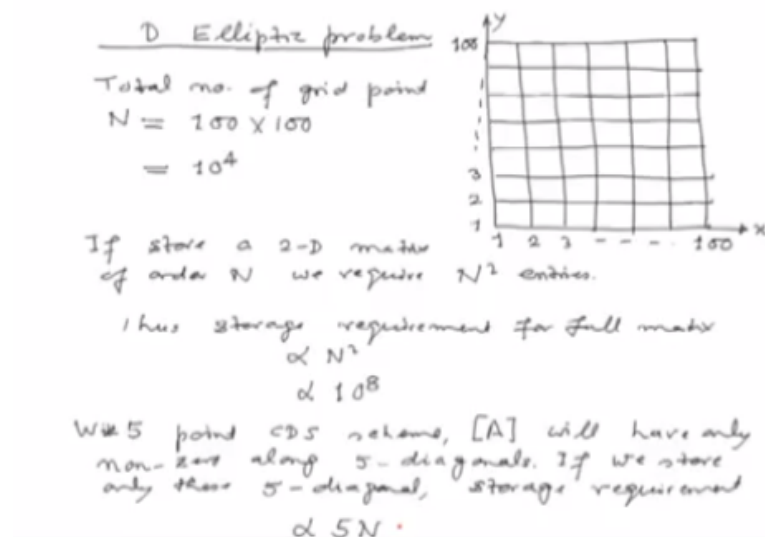 D Elliptic problem
Total no. of grid point
N = 100 X 100
= 10⁴
y
100
3
2
1
1 2 3 - - - . 100 x
If store a 2-D matrix
of order N we require N² entries.
Thus storage requirement for full matrix
∝ N²
∝ 10⁸
5 point CDS scheme, [A] will have only
non-zero along 5-diagonals. If we store
only these 5-diagonal, storage requirement
∝ 5N